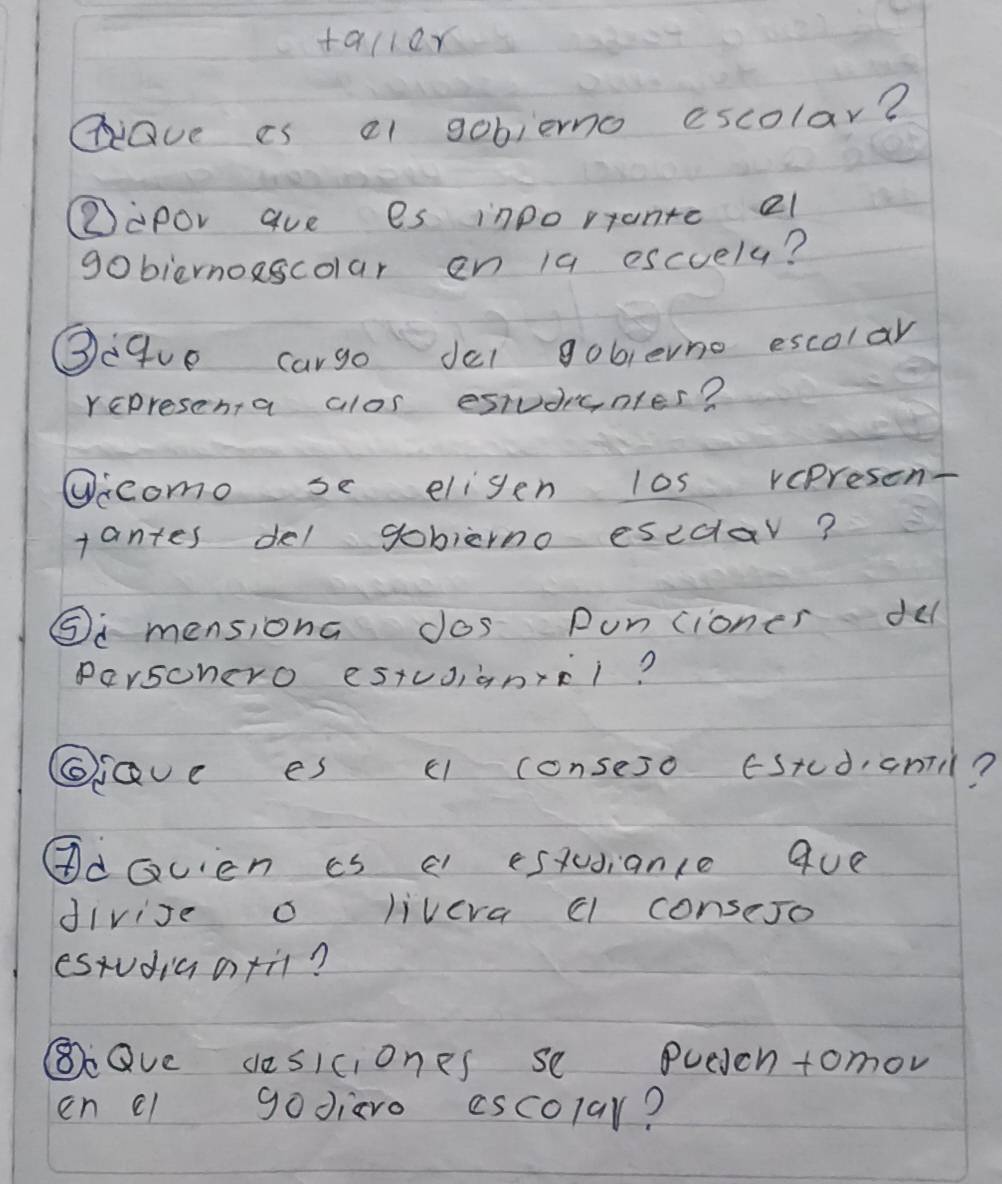 taller
①¿Que es el gobierno escolar?
②¿por que es inportante el
gobiernoescolar en la escuela?
③¿que cargo del gobierno escolar
representa alos estudiantes?
④¿como se eligen los represen-
tantes del gobierno escolar?
⑤¿ mensiona dos Punciones del
Personero estudiantil?
⑥¿Que es el consejo Estudiantil?
⑦¿Quien es el estudiante que
dirije o livera el consejo
estudiantil?
⑧¿Que desiciones se pueden tomar
en el godiero escolar?